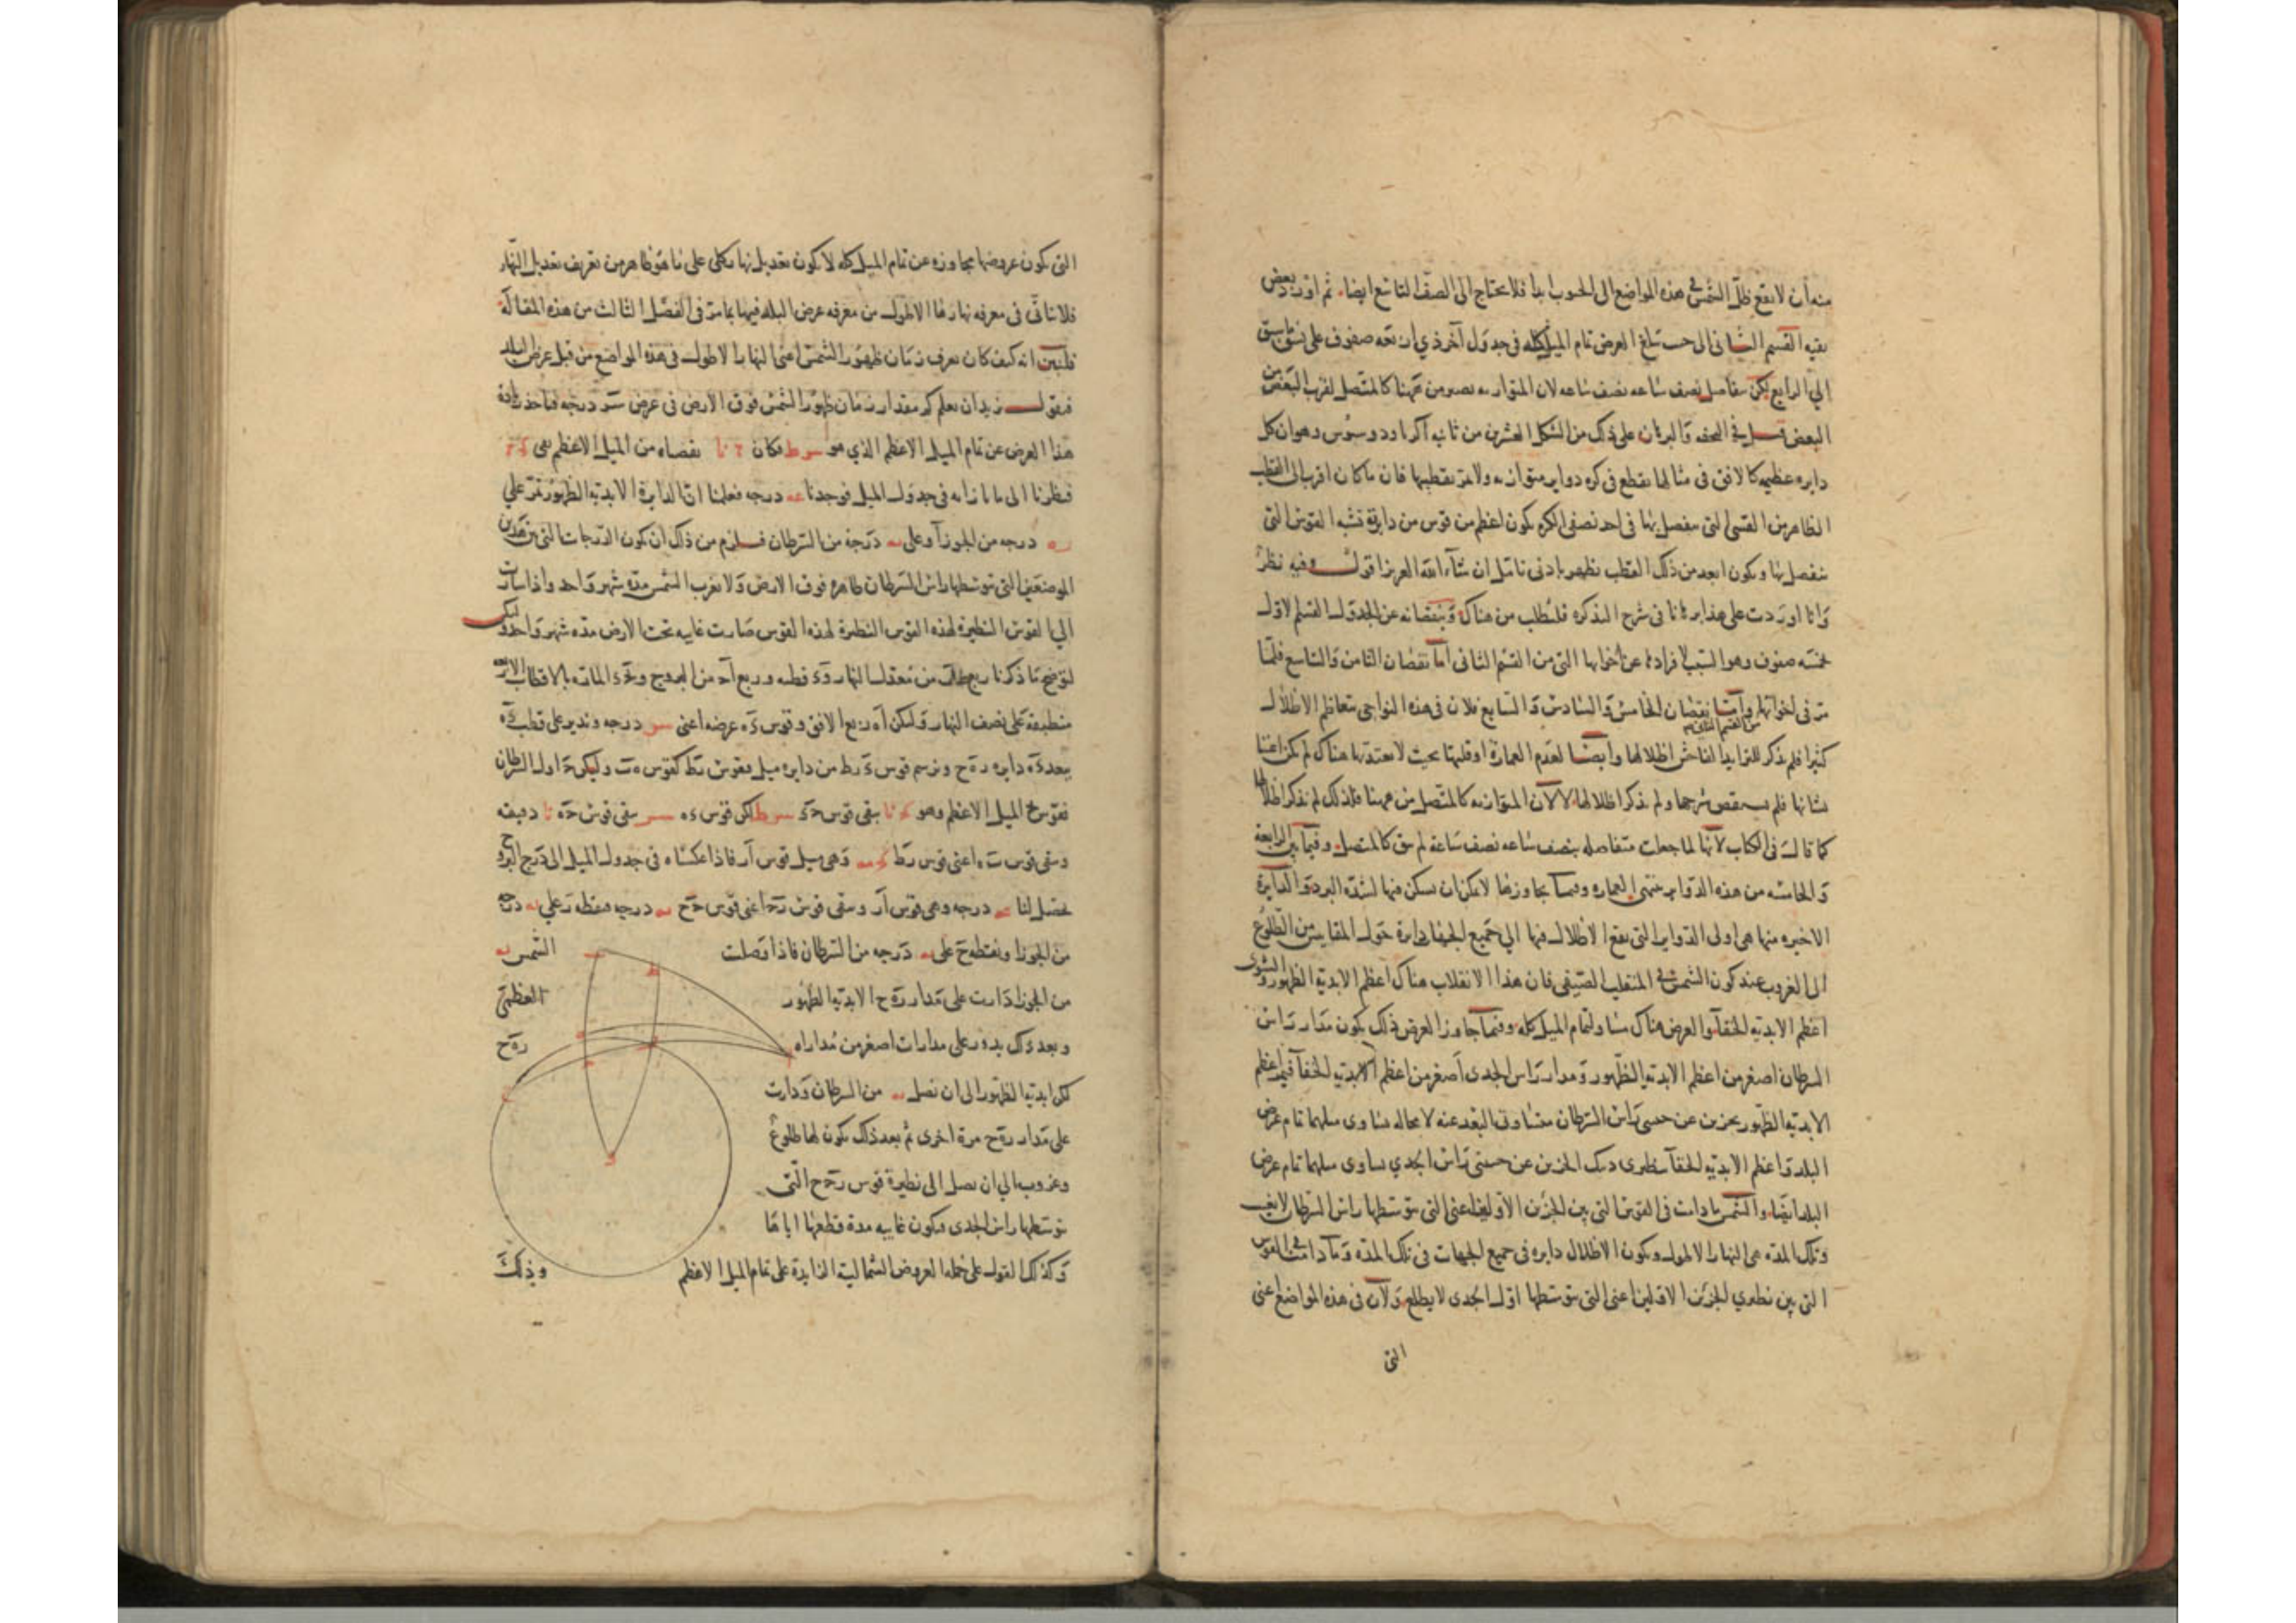 منه أن لا يقع ظل الشمس في هذه المواضع الى الجنوب ابدا فلا يحتاج الى الصف التاسع ايضا ثم اورد بعض
بقيه القسم الثانى الى حيث تبلغ العرض تمام الميل كله في جدول آخر ذي اربعه صفوف على نسق ما سبق
الي الرابع لكن بتفاصل نصف ساعه نصف ساعه لان المتوازيه تصير من ههنا كالمتصل لقرب البعض من
البعض قال في التحفه والبرهان على ذلك من الشكل العشرين من ثانيه اكر ثاودوسيوس وهو ان كل
دايره عظيمه كالافق في مثالها تقطع في كره دواير متوازيه ولا تمر بقطبيها فان ما كان اقرب الى القطب
الظاهر من القسي التي ينفصل بها في احد نصفي الكره يكون اعظم من قوس من دايرة تشبه القوس التي
ينفصل بها ويكون ابعد من ذلك القطب يظهر بادنى تامل ان شآء الله العزيز اقول وفيه نظر
وانا اوردت على هذا برهانا في شرح التذكره فليطلب من هناك ونقصانه عن الجدول القسم الاول
خمسه صفوف وهو السبب لافرادها عن اخواتها التي من القسم الثانى اما نقصان الثامن والتاسع فلما
مر في اخواتها واما نقصان الخامس والسادس والسابع فلان في هذه النواحي يتعاظم الاظلال
من القسم الثاني
كثيرا فلم يذكر للتزايد الفاحش اظلالها وايضا لعدم العمارة او قلتها بحيث لا يعتد بها هناك لم يكن اعتنا
بشانها فلم يستقص شرحها ولم يذكر اظلالها لا لان المتوازيه كالمتصل من ههنا فلذلك لم يذكر اظلالها
كما قال في الكتاب لانها لما جعلت متفاصله بنصف ساعه نصف ساعة لم يبق كالمتصل وفيما بين الرابعة
والخامسه من هذه الدواير منتهى العماره وفيما يجاوزها لا يمكن ان يسكن فيها لشدة البرد والدايرة
الاخيره منها هي اولى الدواير التي يقع الاظلال فيها الي جميع الجهات دايرة حول المقاييس من الطلوع
الى الغروب عند كون الشمس في المنقلب الصيفي فان هذا الانقلاب هناك اعظم الابدية الظهور والشتوى
اعظم الابديه الخفآ والعرض هناك مساو لتمام الميل كله وفيما جاوز العرض ذلك يكون مدار راس
السرطان اصغر من اعظم الابديه الظهور ومدار راس الجدى اصغر من اعظم الابديه الخفآ فيمر اعظم
الابديه الظهور بجزين عن جنبتى راس السرطان متساوى البعد عنه لا محاله يساوى ميلهما تمام عرض
البلد واعظم الابديه الخفآ بنظيرى ذينك الجزين عن جنبتى راس الجدي يساوى ميلهما تمام عرض
البلد ايضا والشمس ما دامت في القوس التي بين الجزين الاولين اعني التي يتوسطها راس السرطان لا يغيب
وتلك المده هي النهار الاطول ويكون الاظلال دايره في جميع الجهات في تلك المده وما دامت في القوس
التي بين نظيري الجزين الاولين اعني التي يتوسطها اول الجدى لا يطلع ولان في هذه المواضع اعنى
التي
التي يكون عروضها مجاوزه عن تمام الميل كله لا يكون تعديل نهار كلي على ما هو ظاهر من تعريف تعديل النهار
فلا يتاتى في معرفه نهارها الاطول من معرفه عرض البلد فيها بما مر في الفصل الثالث من هذه المقالة
فلنبين انه كيف كان يعرف زمان ظهور الشمس اعنى النهار الاطول في هذه المواضع من قبل عرض البلد
فنقول نريد ان نعلم كم مقدار زمان ظهور الشمس فوق الارض في عرض سو درجه فناخذ زيادة
هذا العرض عن تمام الميل الاعظم الذي هو سو ط فكان نا نقصناه من الميل الاعظم بقى
فنظرنا الى ما بازايه في جدول الميل فوجدنا عه درجه فعلمنا ان الدايرة الابدية الظهور تمر علي
يه درجه من الجوزآ وعلى يه درجة من السرطان فلزم من ذلك ان يكون الدرجات التي بين هذين
الموضعين التي يتوسطها راس السرطان ظاهره فوق الارض ولا يغرب الشمس مده شهر واحد واذا سارت
الي القوس النظيرة لهذه القوس صارت غايبه تحت الارض مده شهر واحد وليكن
لتوضيح ما ذكرنا ربع من معدل النهار و قطبه وربع من البروج و الماره بالاقطاب الاربعه
منطبقة على نصف النهار وليكن ربع الافق وقوس عرضه اعنى سو درجه وندير على قطب
ببعد دايره ره ح ونرسم قوس ء ر ط من دايره ميل فقوس ر ط كقوس وليكن اول السرطان
فقوس الميل الاعظم وهو نا يبقى قوس سو ط لكن قوس سو يبقى قوس نا دقيقه
ويبقى قوس اعنى قوس ر ط وهي ميل قوس ا ر فاذا عكسناه في جدول الميل الى درج البروج
يحصل لنا عه درجه وهي قوس ا ر ويبقى قوس اعنى قوس يه درجه فنقطه ر علي يه درجه
من الجوزا ونقطه ح على يه درجه من السرطان فاذا وصلت الشمس يه
من الجوزا دارت على مدار ره ح الابدية الظهور العظمى
وبعد ذلك يدور على مدارات اصغر من مدارات ره ح
لكن ابديه الظهور الى ان تصل يه من السرطان ودارت
على مدار ره ح مرة اخرى ثم بعد ذلك يكون لها طلوع
وغروب الي ان يصل الى نظيرة قوس ر ح التي
يتوسطها راس الجدى فيكون غايبه مدة قطعها اياها
وكذلك القول على جمله العروض الشمالية الزايدة على تمام الميل الاعظم وذلك